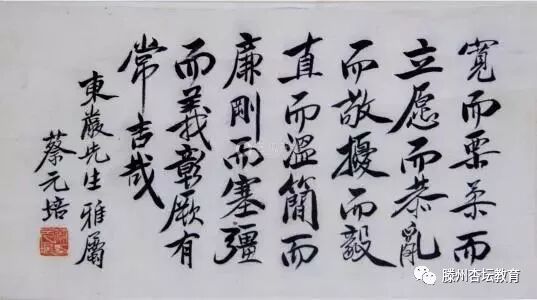 寬而栗柔而
立愿而恭亂
而敬擾而毅
直而溫簡而
廉剛而塞彊
而義彰厥有
常吉哉
東巖先生雅屬
蔡元培
滕州杏坛教育